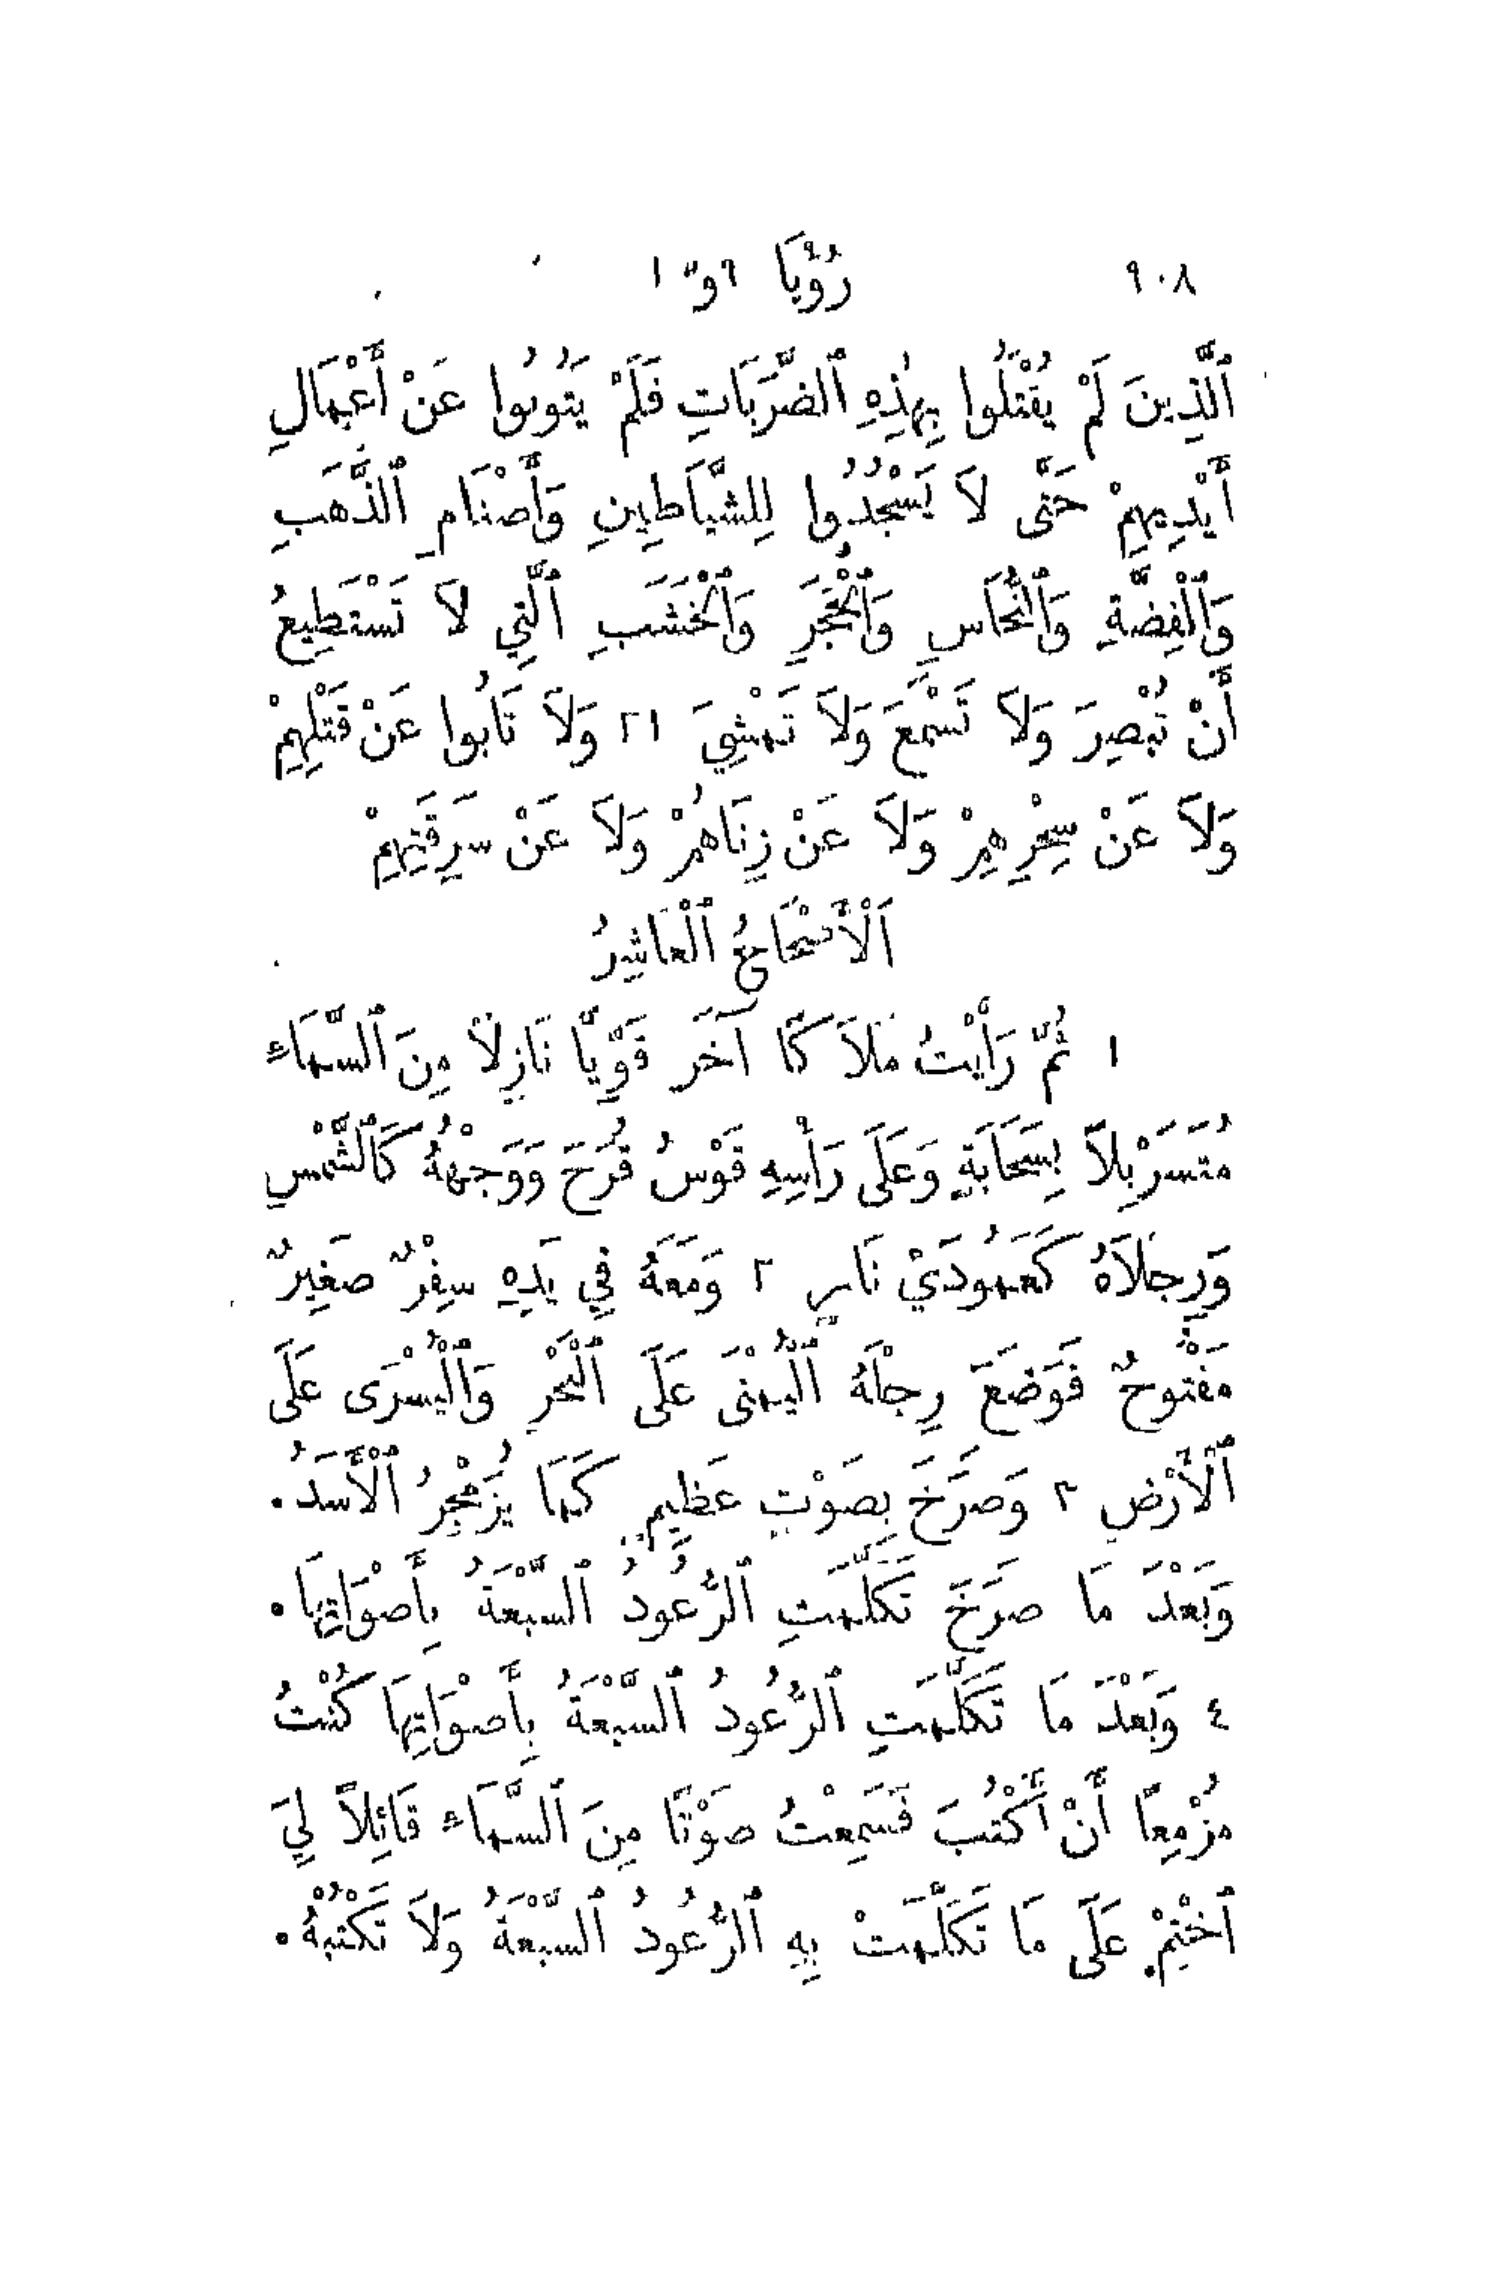 ٩٠٨ رُؤْيَا ٩ و١٠
ٱلَّذِينَ لَمْ يُقْتَلُوا بِهٰذِهِ ٱلضَّرَبَاتِ فَلَمْ يَتُوبُوا عَنْ أَعْمَالِ
أَيْدِيهِمْ حَتَّى لاَ يَسْجُدُوا لِلشَّيَاطِينِ وَأَصْنَامِ ٱلذَّهَبِ
وَٱلْفِضَّةِ وَٱلنُّحَاسِ وَٱلْحَجَرِ وَٱلْخَشَبِ ٱلَّتِي لاَ تَسْتَطِيعُ
أَنْ تُبْصِرَ وَلاَ تَسْمَعَ وَلاَ تَمْشِيَ ٢١ وَلاَ تَابُوا عَنْ قَتْلِهِمْ
وَلاَ عَنْ سِحْرِهِمْ وَلاَ عَنْ زِنَاهُمْ وَلاَ عَنْ سَرِقَتِهِمْ
اَلْأَصْحَاحُ ٱلْعَاشِرُ
١ ثُمَّ رَأَيْتُ مَلاَكًا آخَرَ قَوِيًّا نَازِلاً مِنَ ٱلسَّمَاءِ
مُتَسَرْبِلاً بِسَحَابَةٍ وَعَلَى رَأْسِهِ قَوْسُ قُزَحَ وَوَجْهُهُ كَٱلشَّمْسِ
وَرِجْلاَهُ كَعَمُودَيْ نَارٍ ٢ وَمَعَهُ فِي يَدِهِ سِفْرٌ صَغِيرٌ
مَفْتُوحٌ فَوَضَعَ رِجْلَهُ ٱلْيُمْنَى عَلَى ٱلْبَحْرِ وَٱلْيُسْرَى عَلَى
ٱلْأَرْضِ ٣ وَصَرَخَ بِصَوْتٍ عَظِيمٍ كَمَا يُزَمْجِرُ ٱلْأَسَدُ.
وَبَعْدَ مَا صَرَخَ تَكَلَّمَتِ ٱلرُّعُودُ ٱلسَّبْعَةُ بِأَصْوَاتِهَا.
٤ وَبَعْدَ مَا تَكَلَّمَتِ ٱلرُّعُودُ ٱلسَّبْعَةُ بِأَصْوَاتِهَا كُنْتُ
مُزْمِعًا أَنْ أَكْتُبَ فَسَمِعْتُ صَوْتًا مِنَ ٱلسَّمَاءِ قَائِلاً لِيَ
ٱخْتِمْ عَلَى مَا تَكَلَّمَتْ بِهِ ٱلرُّعُودُ ٱلسَّبْعَةُ وَلاَ تَكْتُبْهُ.